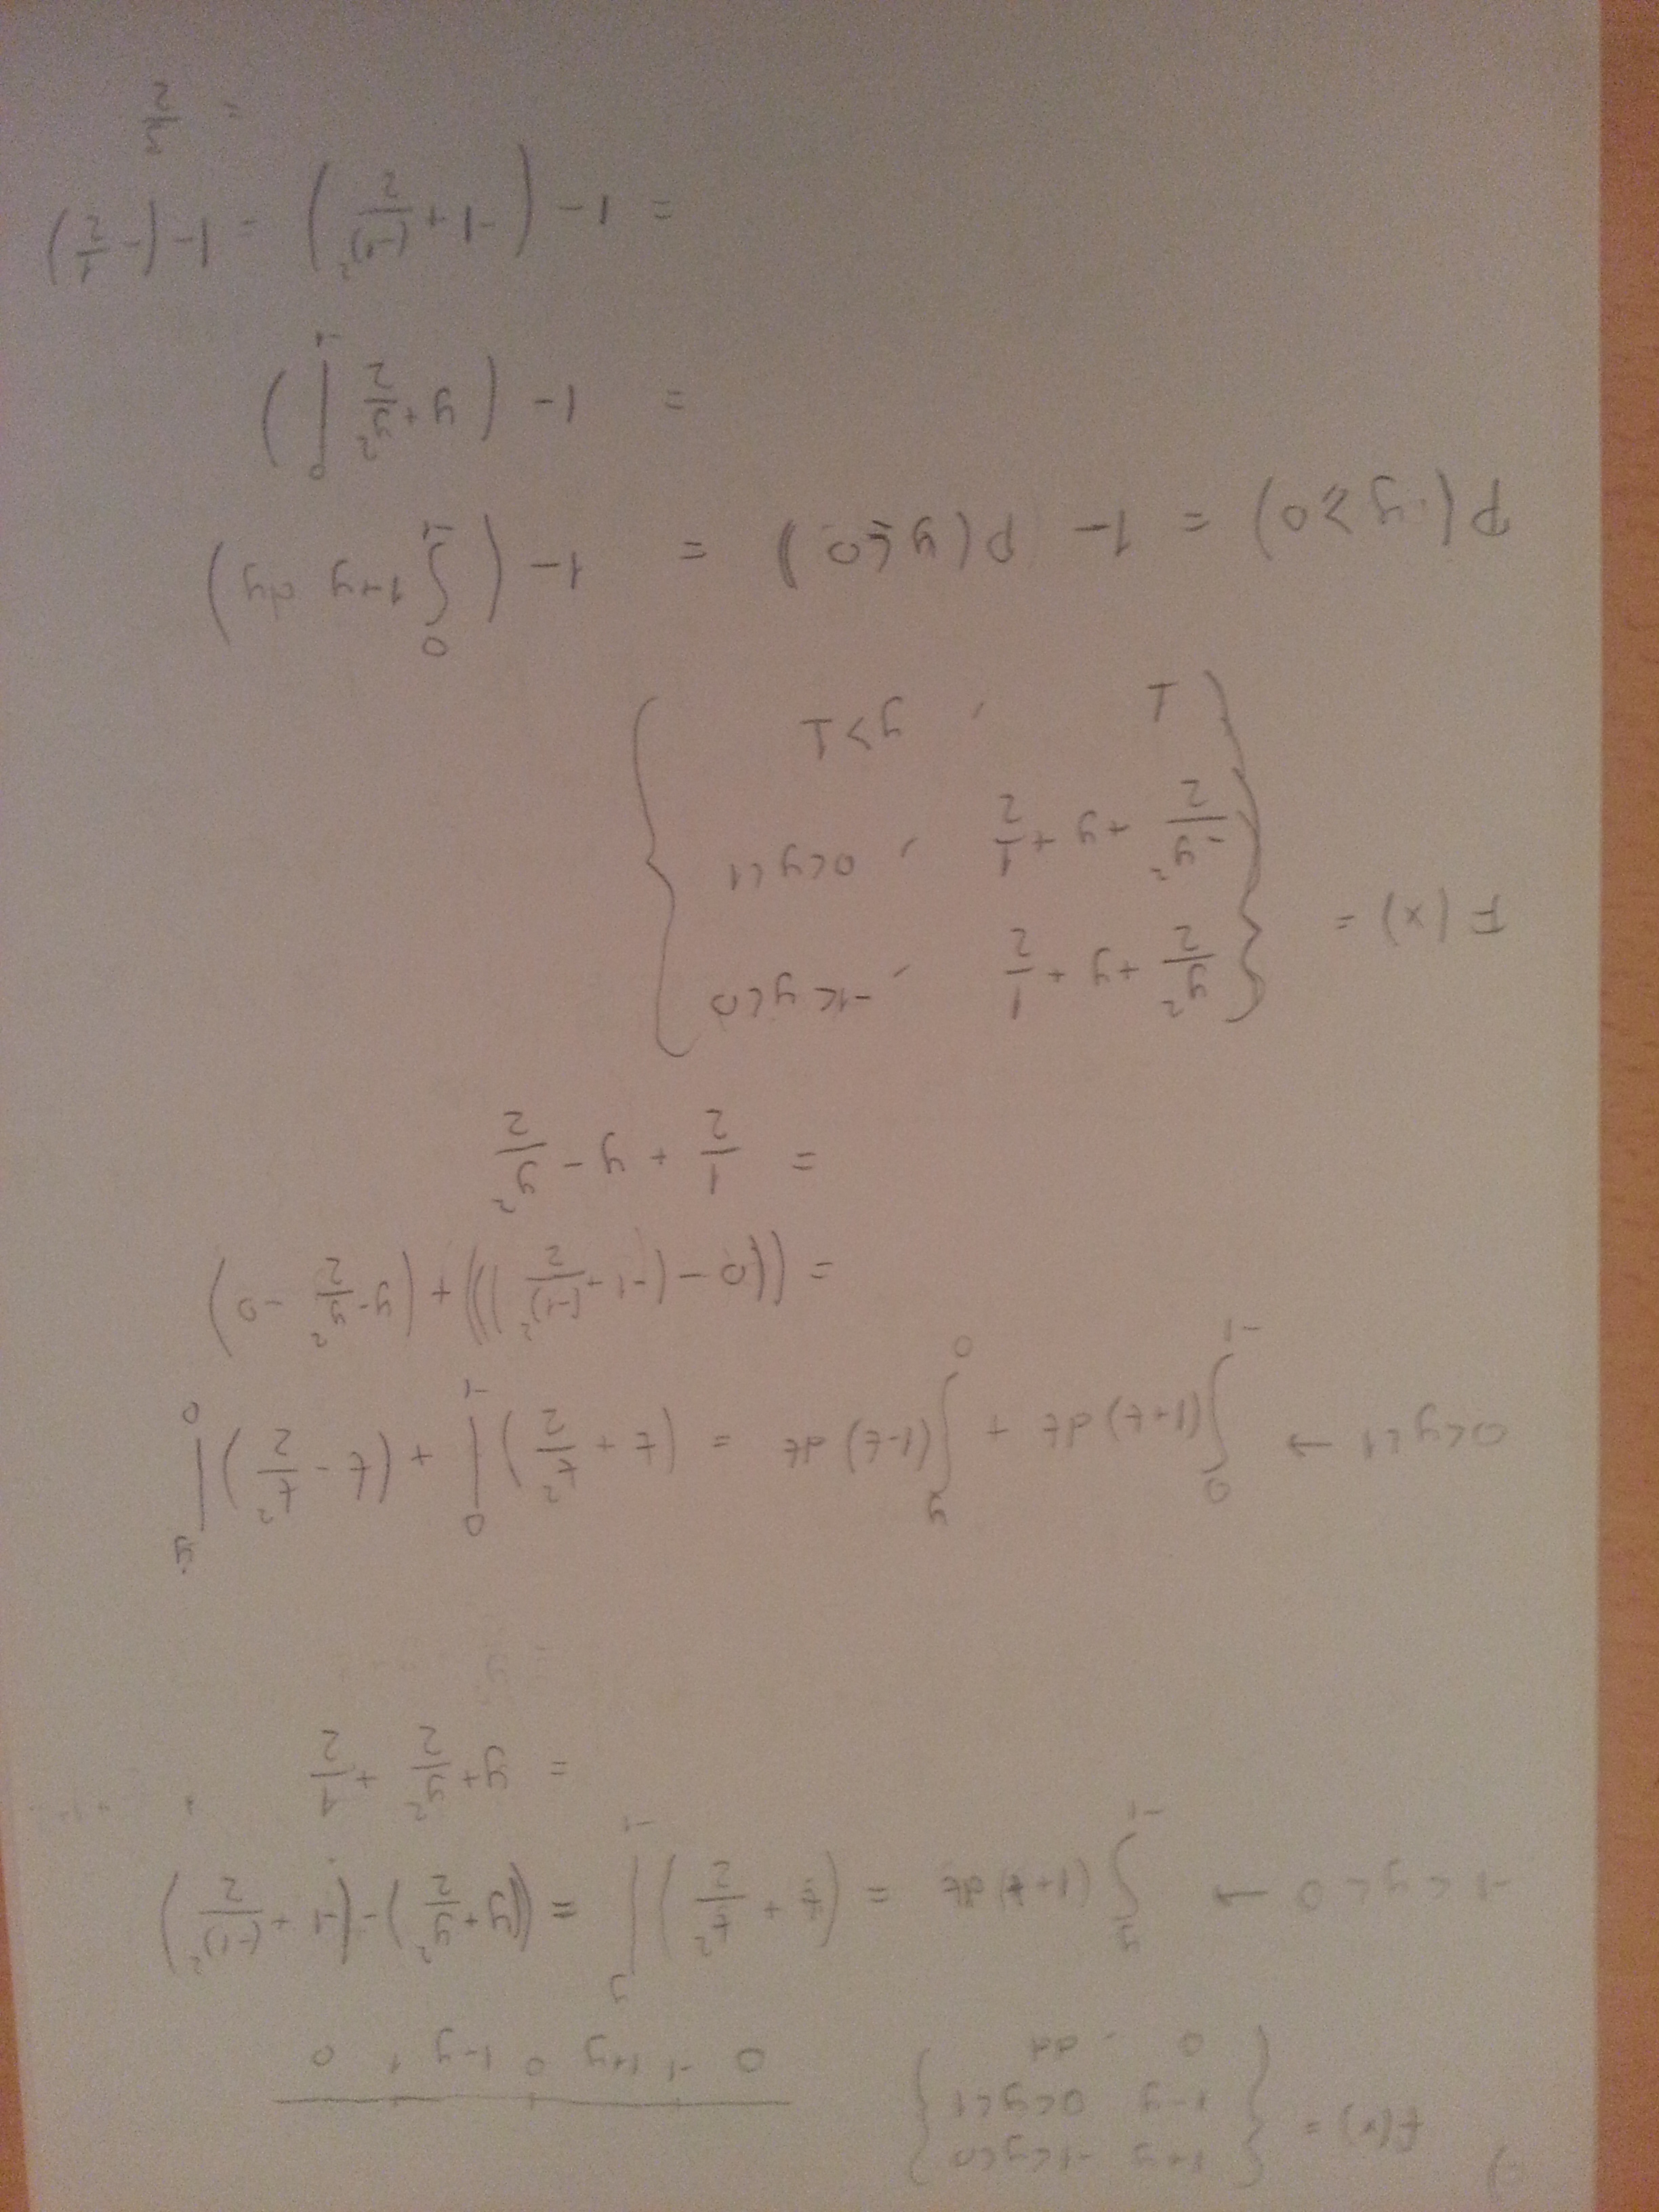 f(x) = { 1+y -1<y<0
1-y 0<y<1
0 , dd }
0 -1 1+y 0 1-y 1 0
-1 < y < 0 → ∫_{-1}^{y} (1+t) dt = (t + t²/2) |_{-1}^{y} = (y + y²/2) - (-1 + (-1)²/2)
= y + y²/2 + 1/2
0<y<1 → ∫_{-1}^{0} (1+t) dt + ∫_{0}^{y} (1-t) dt = (t + t²/2) |_{-1}^{0} + (t - t²/2) |_{0}^{y}
= ((0 - (-1 + (-1)²/2))) + (y - y²/2 - 0)
= 1/2 + y - y²/2
F(x) = { y²/2 + y + 1/2 , -1<y<0
-y²/2 + y + 1/2 , 0<y<1
1 , y>1 }
P(y≥0) = 1 - P(y≤0) = 1 - (∫_{-1}^{0} 1+y dy)
= 1 - (y + y²/2 |_{-1}^{0})
= 1 - (-1 + (-1)²/2) = 1 - (-1/2)
=